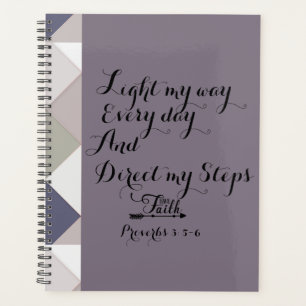 Light my way
Every day
And
Direct my Steps
Faith
Proverbs 3:5-6